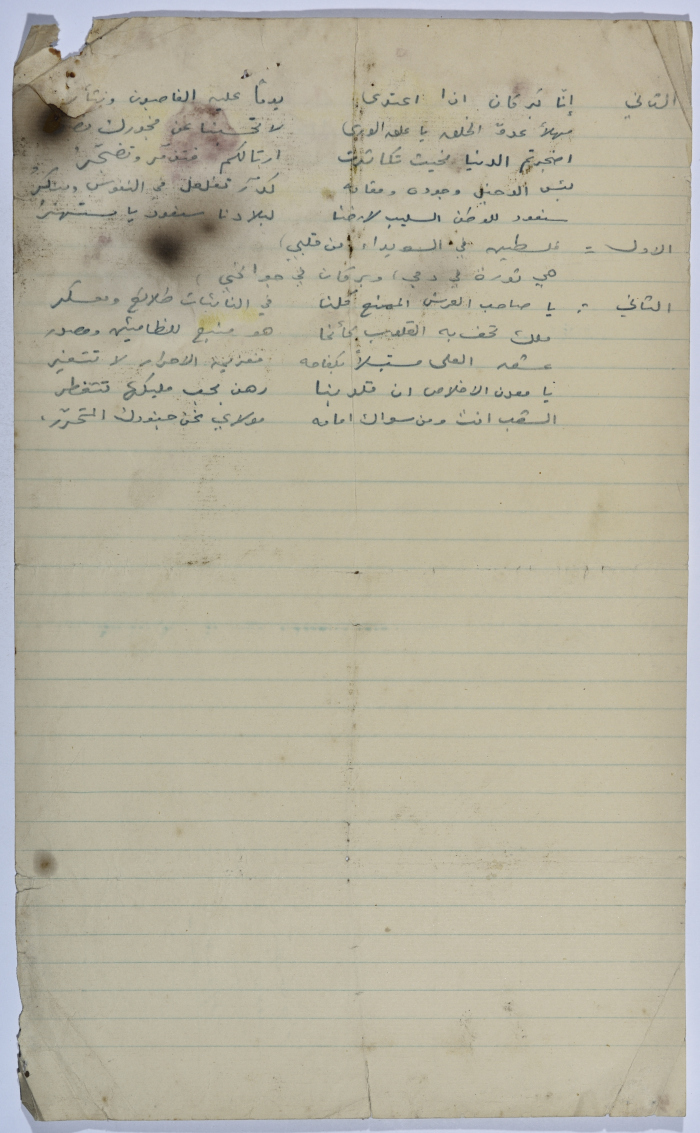 الثاني إنا بركان اذا اعتدى يوماً عليه الغاصبون
مهلاً عدوّ الخلق يا علق الورى لا تحسبنا عن
اضجرتم الدنيا بحيث تكاثرت ارتالكم فتذمر وتضجر
بئس الدخيل وجوده ومقامه كدر تغلغل في النفوس
سنعود للوطن السليب لارضنا لبلادنا سنعود يا مستهتر
الاول = فلسطين في السويداء (من قلبي)
هي ثورة في دمي) وبركان في جوانحي)
الثاني : يا صاحب العرش الممنع كلنا في النائبات طلائع ومعسكر
ملك تحف به القلوب كأنما هو منبع للظامئين ومصدر
عشق العلى مستبسلاً بكفاحه فعزيمة الاحرار لا تتغير
يا معدن الاخلاص ان قلوبنا رهن بحب مليكها تتفطر
الشعب انت ومن سواك امامه مولاي نحن جنودك التحرر.